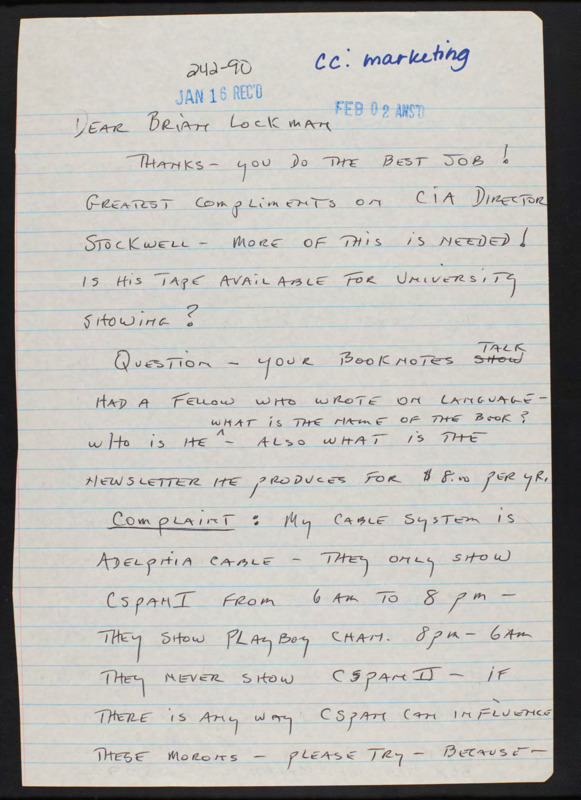 242-90
cc: marketing
JAN 16 REC'D
FEB 02 ANS'D
DEAR BRIAN LOCKMAN
THANKS - YOU DO THE BEST JOB!
GREATEST COMPLIMENTS ON CIA DIRECTOR
STOCKWELL - MORE OF THIS IS NEEDED!
IS HIS TAPE AVAILABLE FOR UNIVERSITY
SHOWING?
TALK
QUESTION - YOUR BOOKNOTES SHOW
HAD A FELLOW WHO WROTE ON LANGUAGE -
WHAT IS THE NAME OF THE BOOK?
WHO IS HE ^ - ALSO WHAT IS THE
NEWSLETTER HE PRODUCES FOR $8.00 PER YR.
COMPLAINT: MY CABLE SYSTEM IS
ADELPHIA CABLE - THEY ONLY SHOW
CSPAN I FROM 6 AM TO 8 PM -
THEY SHOW PLAYBOY CHAN. 8PM - 6AM
THEY NEVER SHOW CSPAN II - IF
THERE IS ANY WAY CSPAN CAN INFLUENCE
THESE MORONS - PLEASE TRY - BECAUSE -